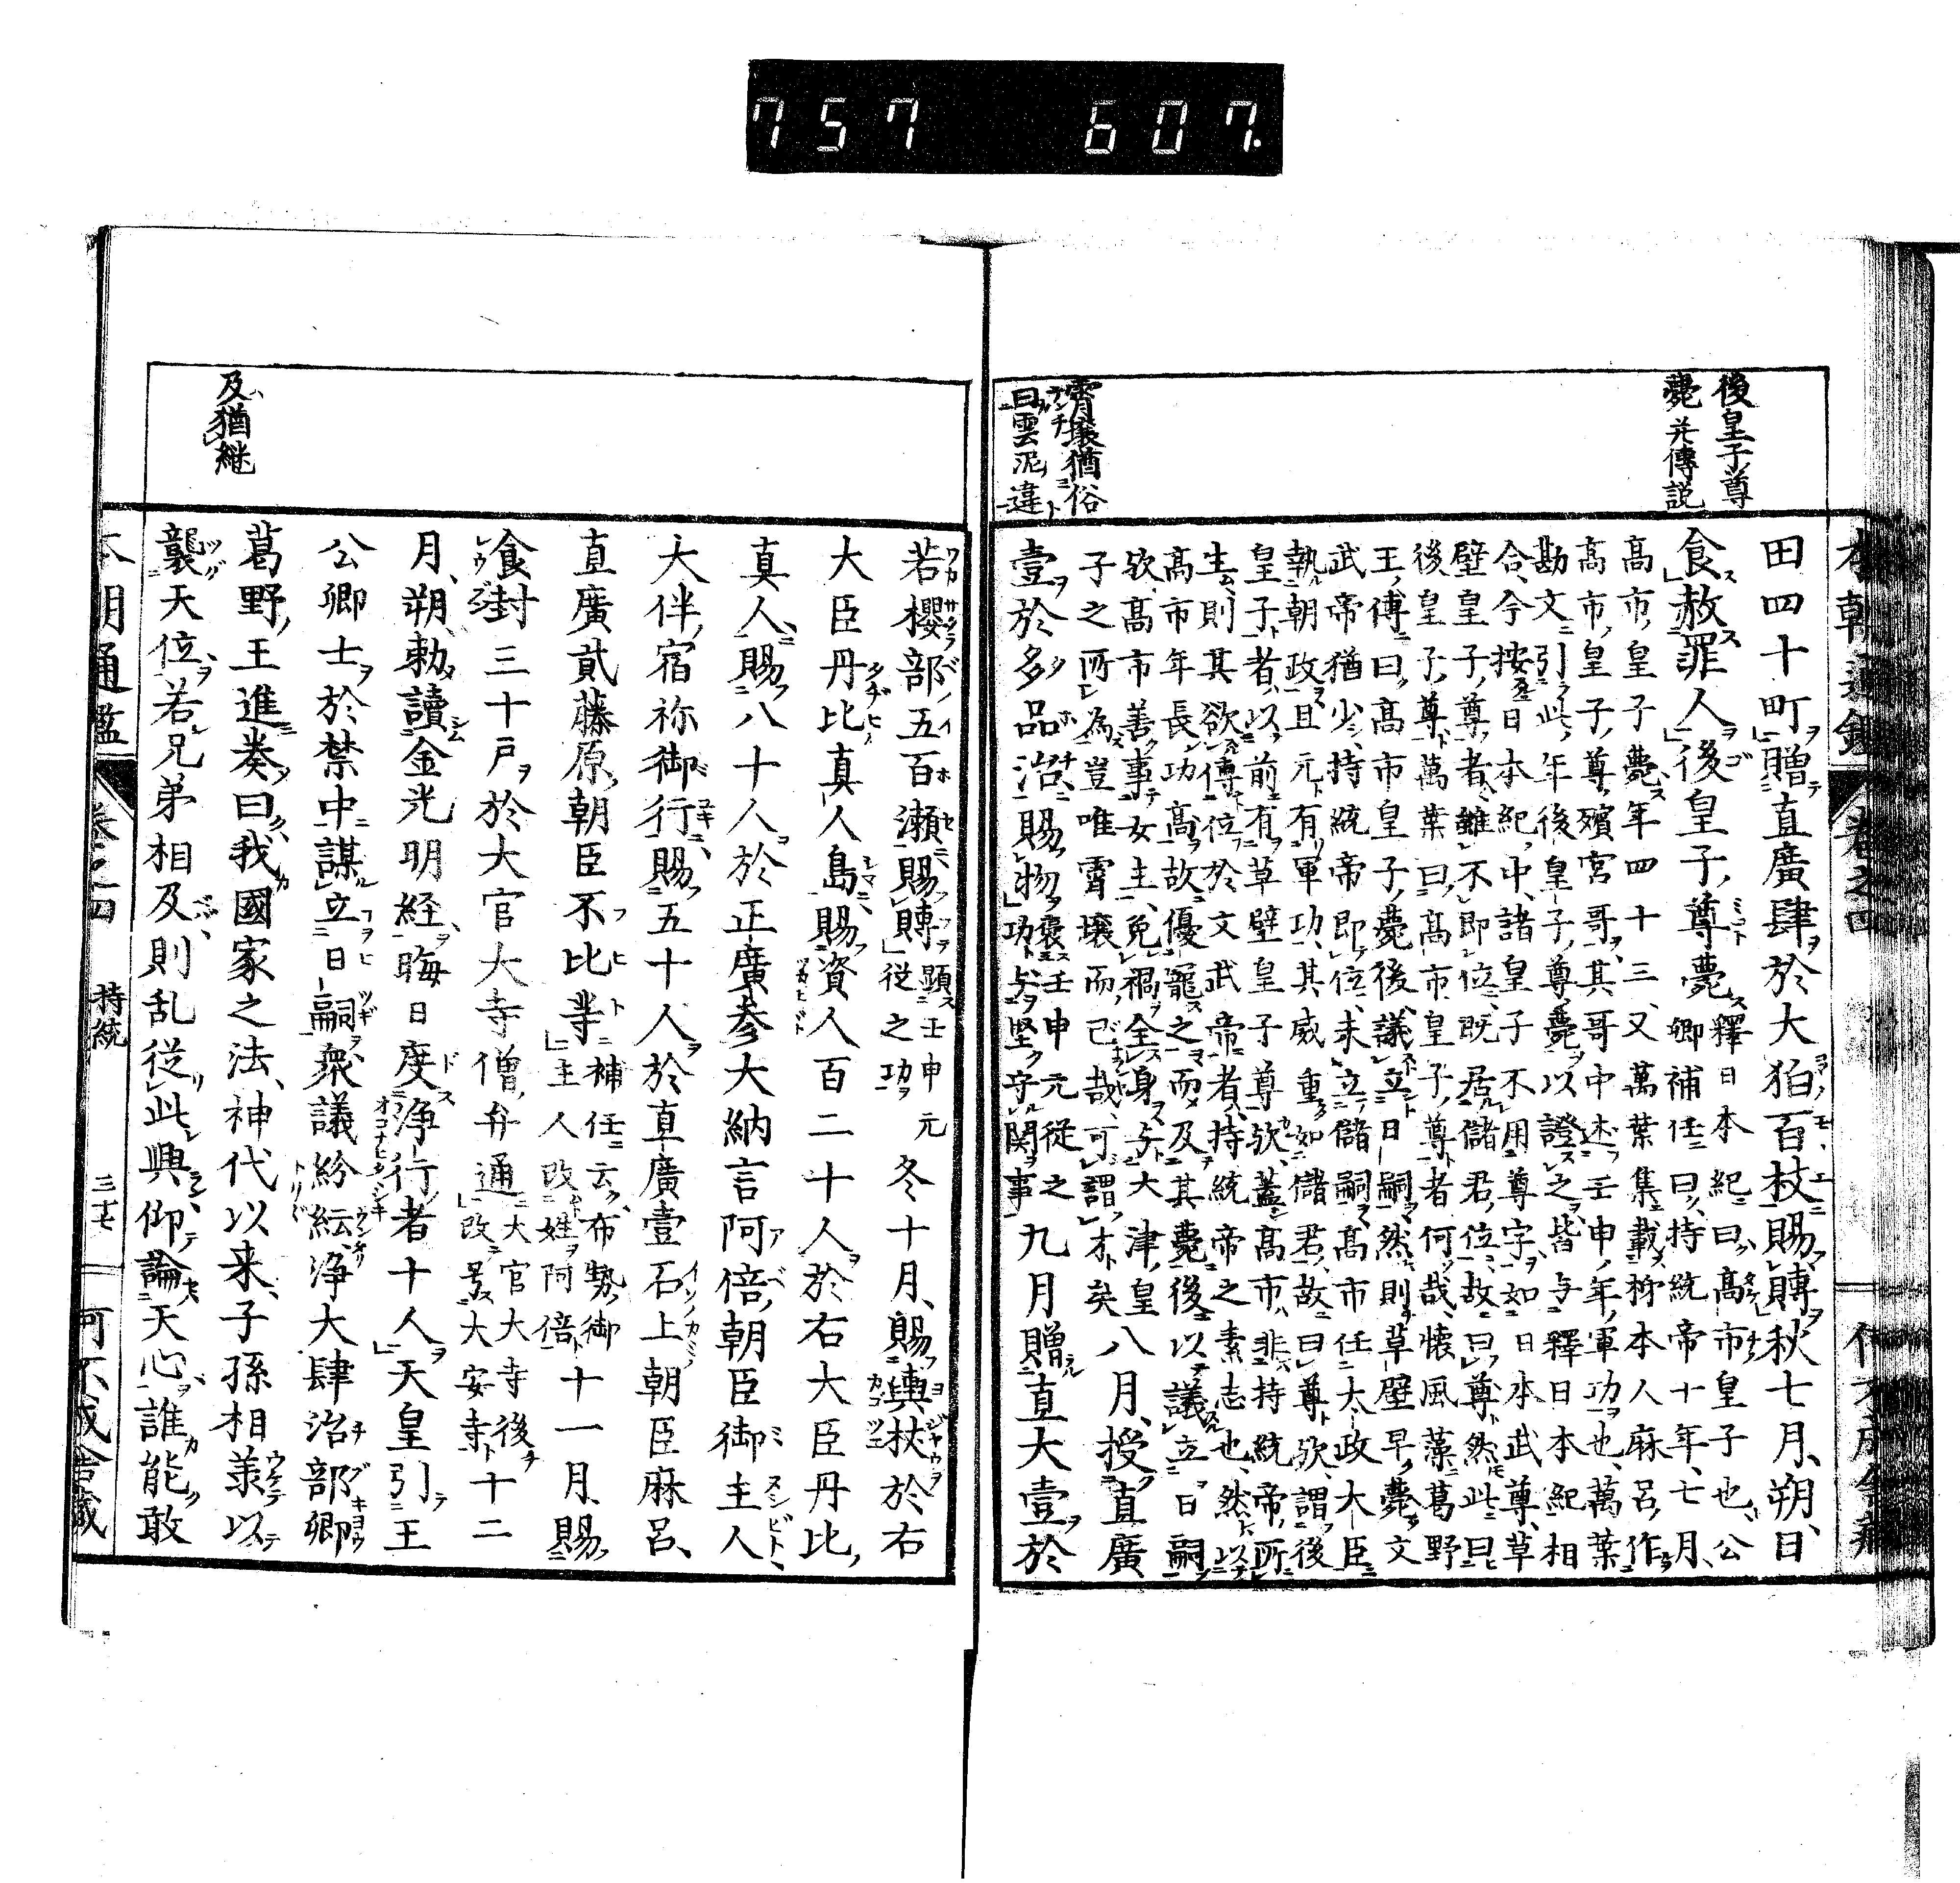 757 607.
後皇子尊
薨并傳説
霄壤猶俗
曰雲泥違
田四十町贈直廣肆於大狛百枝賜賻秋七月朔日
食赦罪人後皇子尊薨
釋日本紀曰高市皇子也公
卿補任曰持統帝十年七月
高市皇子薨年四十三又萬葉集載柹本人麻呂作
高市皇子尊殯宮哥其哥中述壬申年軍功也萬葉
勘文引此年後皇子尊薨以證之皆与釋日本紀相
合今按日本紀中諸皇子不用尊字如日本武尊草
壁皇子尊者雖不即位既居儲君位故曰尊然此曰
後皇子尊萬葉曰高市皇子尊者何哉懷風藻葛野
王傳曰高市皇子薨後議立日嗣然則草壁早薨文
武帝猶少持統帝即位未立儲嗣高市任太政大臣
執朝政且元有軍功其威重如儲君故曰尊欤謂後
皇子者以前有草壁皇子尊欤蓋高市非持統帝所
生則其欲傳位於文武帝者持統帝之素志也然以
高市年長功高故優寵之而及其薨後以議立日嗣
欤高市善事女主免禍全身与大津皇
子之所為豈唯霄壤而已哉可謂才矣
八月授直廣
壹於多品治賜物
褒壬申元從之
功与堅守関事
九月贈直大壹於
若櫻部五百瀬賜賻
顯壬申元
從之功
冬十月賜輿杖於右
大臣丹比真人島賜資人百二十人於右大臣丹比
真人賜八十人於正廣參大納言阿倍朝臣御主人
大伴宿祢御行賜五十人於直廣壹石上朝臣麻呂
直廣貳藤原朝臣不比等
補任云布勢御
主人改姓阿倍
十一月賜
食封三十戸於大官大寺僧弁通
大官大寺後
改号大安寺
十二
月朔勅讀金光明経晦日度浄行者十人天皇引王
公卿士於禁中謀立日嗣衆議紛紜浄大肆治部卿
葛野王進奏曰我國家之法神代以来子孫相羕以
襲天位若兄弟相及則乱從此興仰論天心誰能敢
及猶継
本朝通鑑 卷之四 持統 三十七